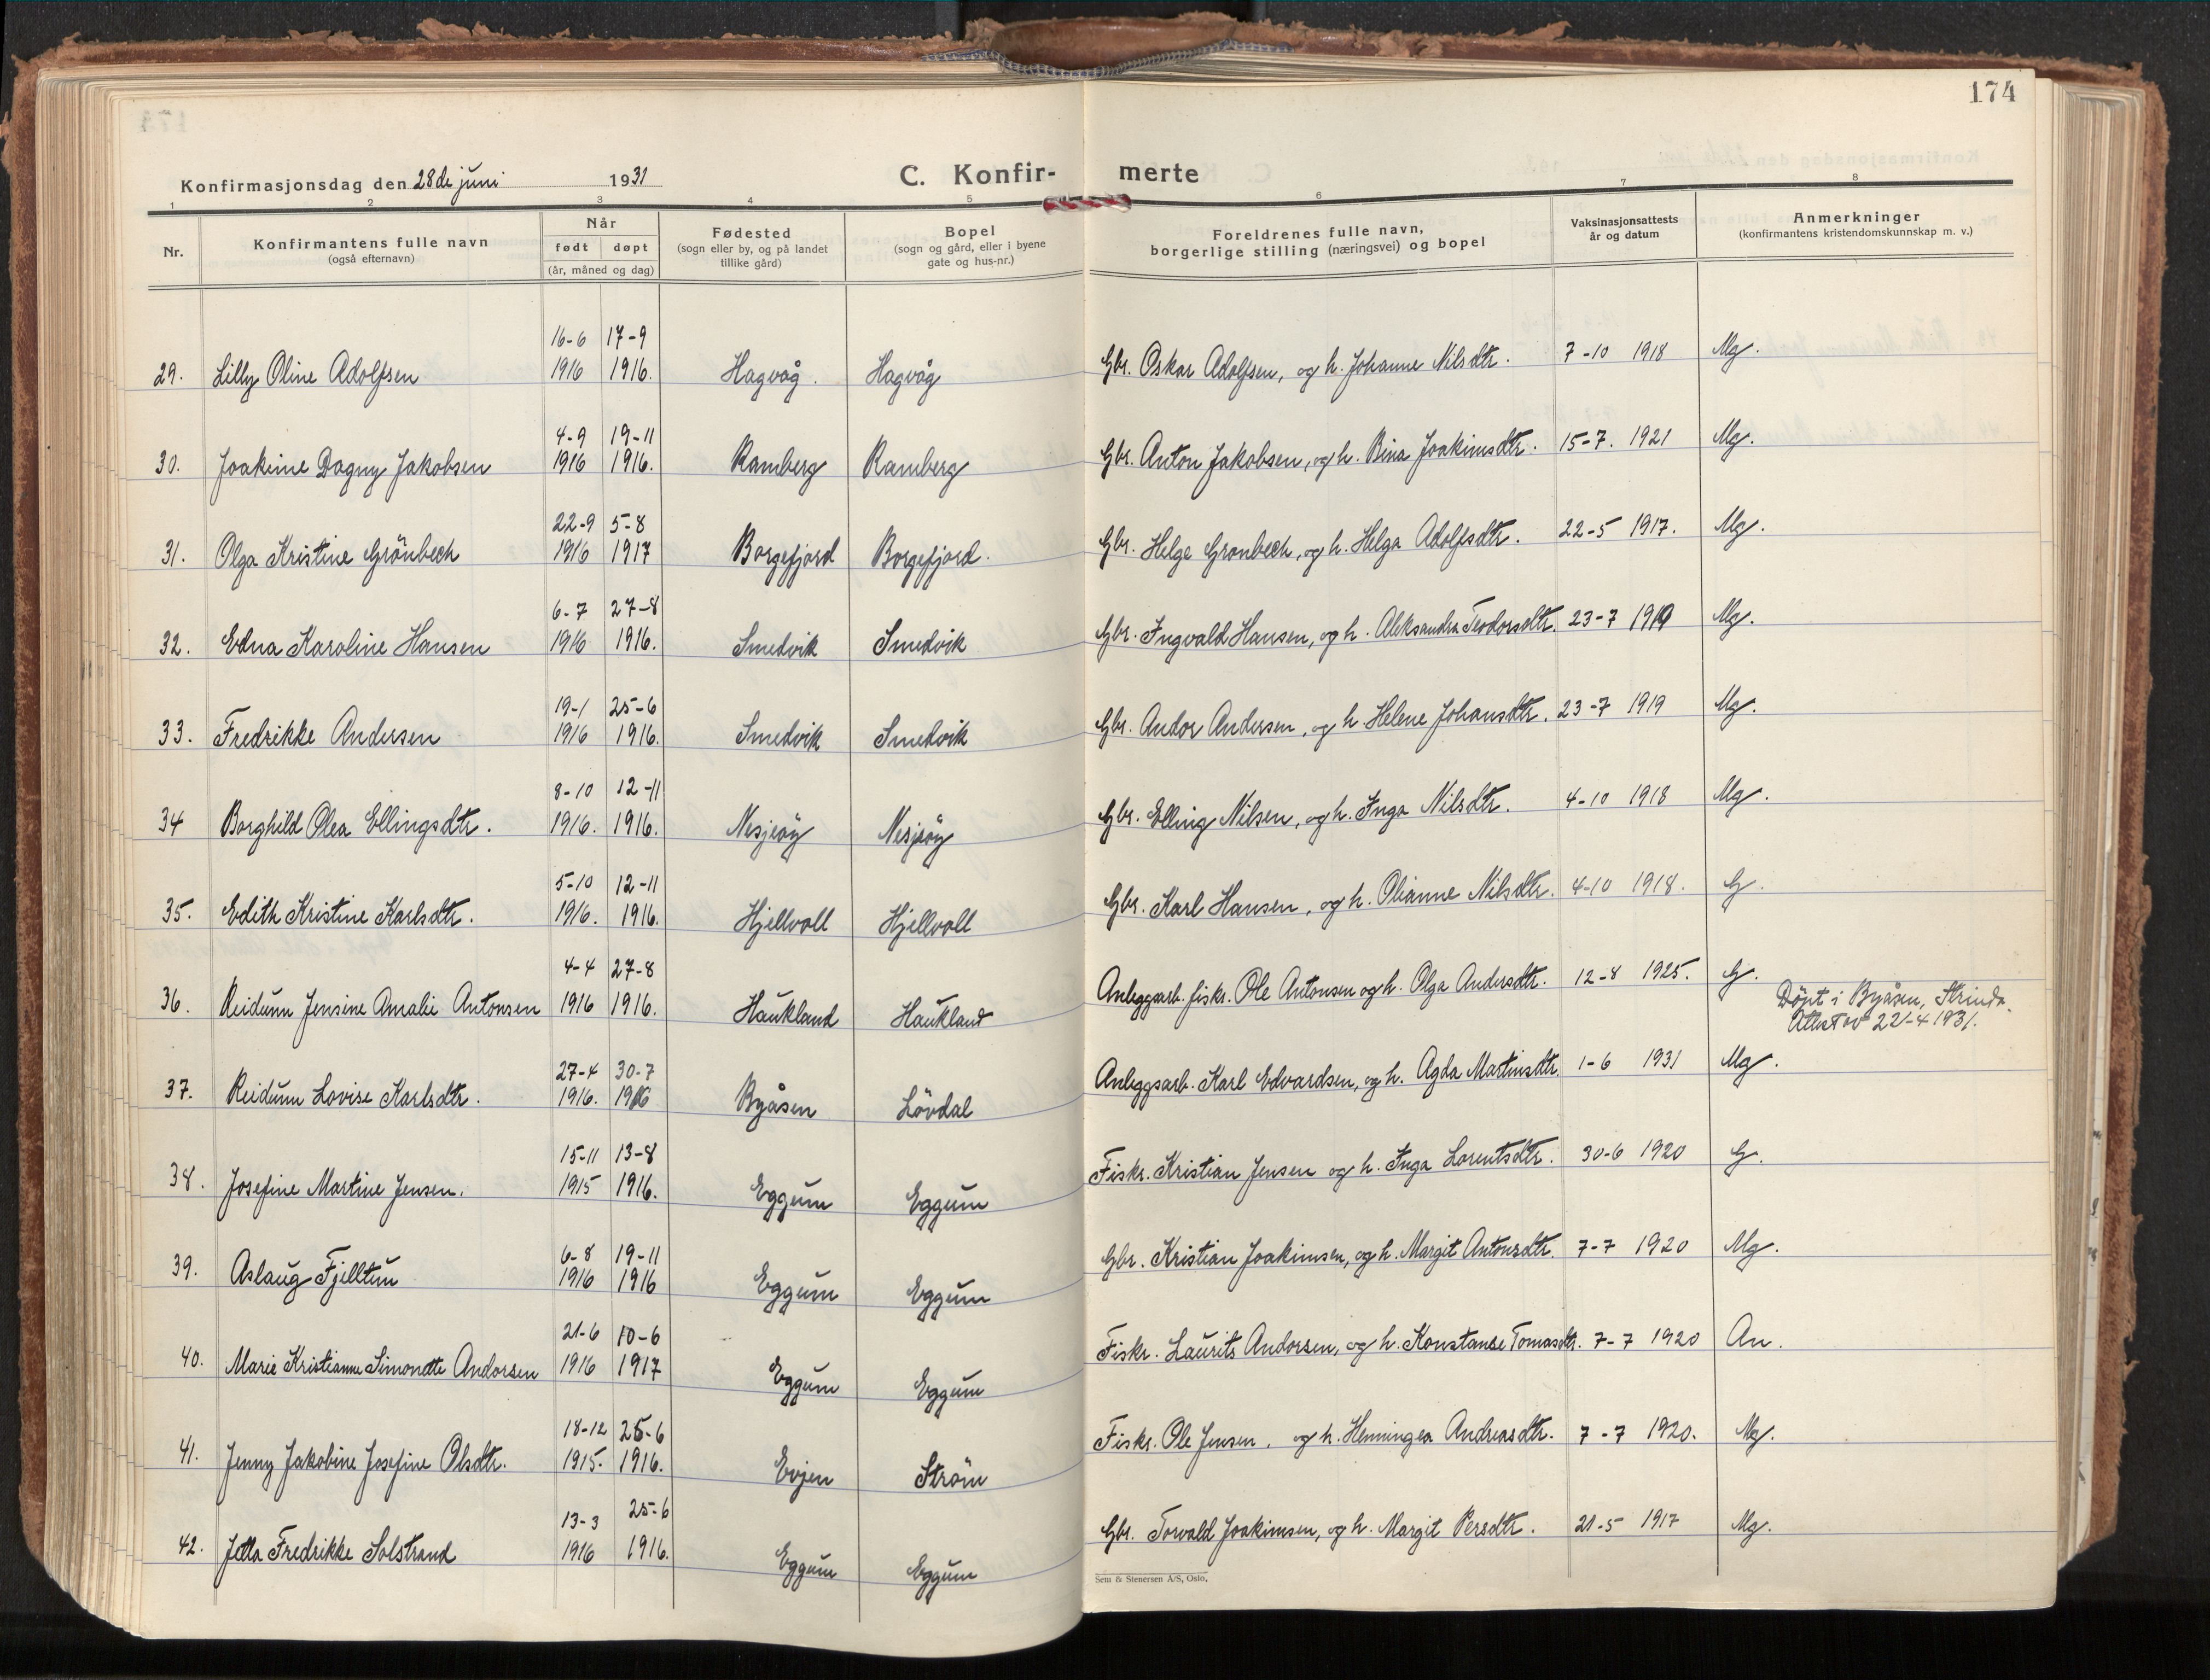 174
Konfirmasjonsdag den 28de juni 1931 C. Konfir- merte
1 2 3 4 5 6 7 8
Nr. Konfirmantens fulle navn (også efternavn) Når født døpt (år, måned og dag) Fødested (sogn eller by, og på landet tillike gård) Bopel (sogn og gård, eller i byene gate og hus-nr.) Foreldrenes fulle navn, borgerlige stilling (næringsvei) og bopel Vaksinasjonsattests år og datum Anmerkninger (konfirmantens kristendomskunnskap m. v.)
29. Lilly Oline Adolfsen 16-6 1916 17-9 1916. Hagvåg. Hagvåg Gbr. Oskar Adolfsen, og h. Johanne Nilsdtr. 7-10 1918 Mg.
30. Joakine Dagny Jakobsen 4-9 1916 19-11 1916. Ramberg Ramberg Gbr. Anton Jakobsen, og h. Bina Joakimsdtr. 15-7. 1921 Mg.
31. Olga Kristine Grönbech 22-9 1916 5-8 1917 Borgefjord Borgefjord. Gbr. Helge Gronbech, og h. Helga Adolfsdtr. 22-5 1917. Mg.
32. Edna Karoline Hansen 6-7 1916 27-8 1916. Smedvik Smedvik Gbr. Ingvald Hansen, og h. Aleksandra Teodorsdtr. 23-7 1919 Mg.
33. Fredrikke Andersen 19-1 1916 25-6 1916. Smedvik Smedvik Gbr. Andor Andersen, og h Helene Johansdtr. 23-7 1919 Mg.
34 Borghild Olea Ellingsdtr. 8-10 1916. 12-11 1916. Nesjeöy Nesjeöy Gbr. Elling Nilsen, og h. Inga Nilsdtr. 4-10 1918 Mg.
35. Edith Kristine Karlsdtr. 5-10 1916. 12-11 1916. Hjellvoll Hjellvoll Gbr. Karl Hansen, og h. Olianne Nilsdtr. 4-10 1918. G.
36. Reidunn Jensine Amalie Antonsen 4-4 1916 27-8 1916. Haukland Haukland Anleggsarb. fiskr. Ole Antonsen og h. Olga Andersdtr. 12-8 1925. G.
Döpt i Byåsen, Strinda.
Attest av 22-4 1931.
37. Reidunn Lovise Karlsdtr. 27-4 1916. 30-7 1916 Byåsen Lövdal Anleggsarb. Karl Edvardsen, og h. Agda Martinsdtr. 1-6 1931 Mg.
38. Josefine Martine Jensen. 15-11 1915 13-8 1916. Eggum Eggum Fiskr. Kristian Jensen og h. Inga Lorentsdtr. 30-6 1920 G.
39. Aslaug Fjelltun 6-8 1916 19-11 1916 Eggum Eggum Gbr. Kristian Joakimsen, og h. Margit Antonsdtr. 7-7 1920 Mg.
40. Marie Kristianne Simonette Andorsen 21-6 1916 10-6 1917 Eggum Eggum Fiskr. Laurits Andorsen, og h. Konstanse Tomasdtr. 7-7 1920 An.
41. Jenny Jakobine Josefine Olsdtr. 18-12 1915. 25-6 1916. Evjen Ström Fiskr. Ole Jensen, og h. Henningea Andreasdtr. 7-7 1920. Mg.
42. Jetta Fredrikke Solstrand 13-3 1916 25-6 1916. Eggum Eggum Gbr. Torvald Joakimsen, og h. Margit Persdtr. 21-5 1917 Mg.
Sem & Stenersen A/S, Oslo.